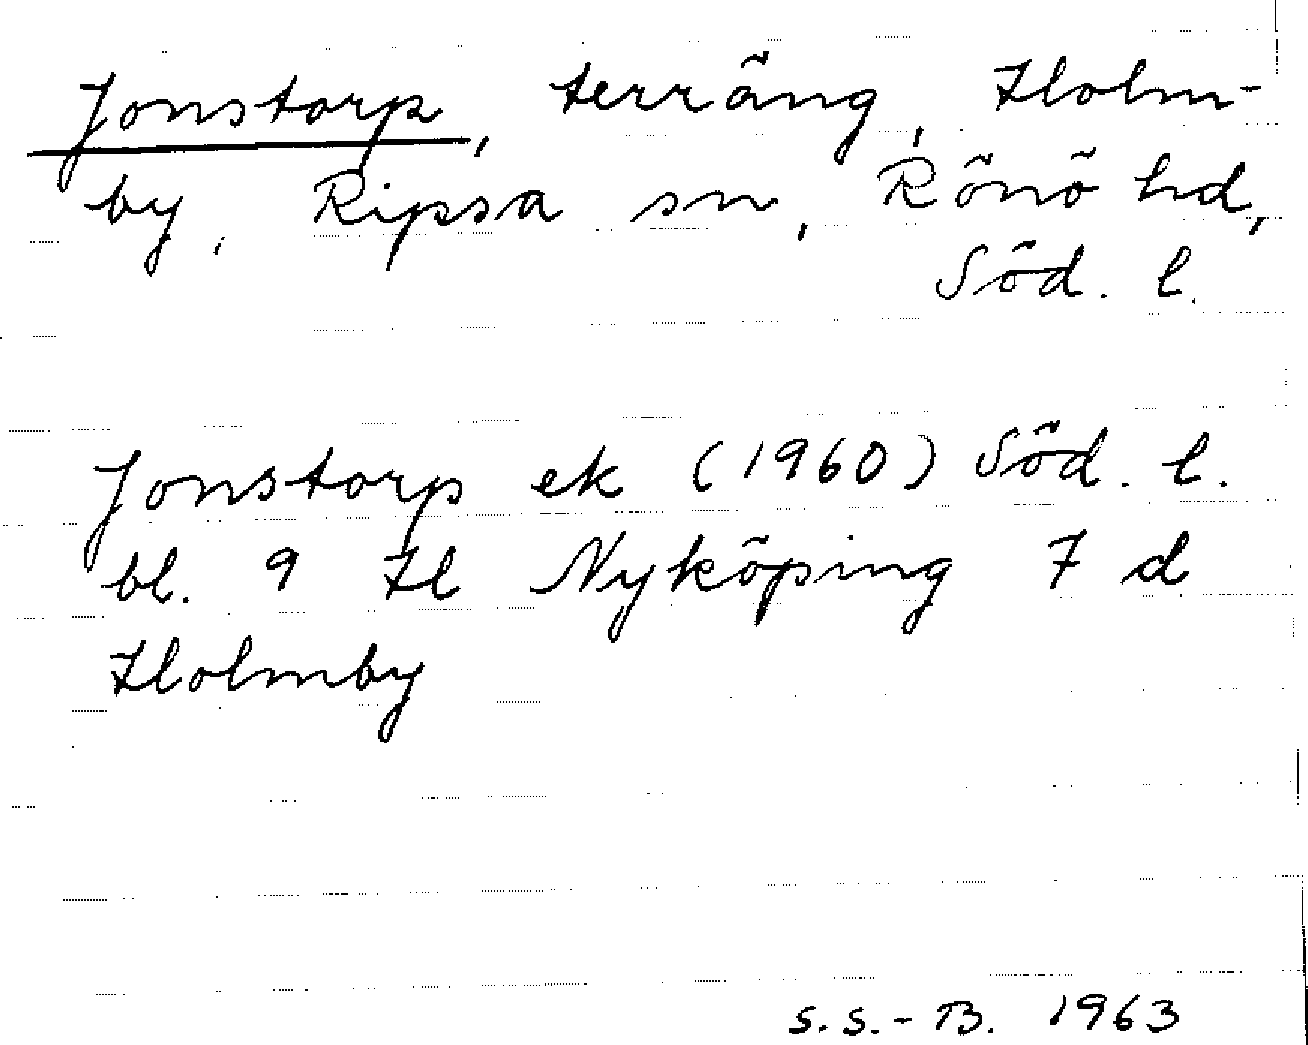 Jonstorp, terräng, Holm-
by, Ripsa sn, Rönö hd,
Söd. l.
Jonstorp ek (1960) Söd. l.
bl. 9 H Nyköping 7 d
Holmby
S.S.-B. 1963